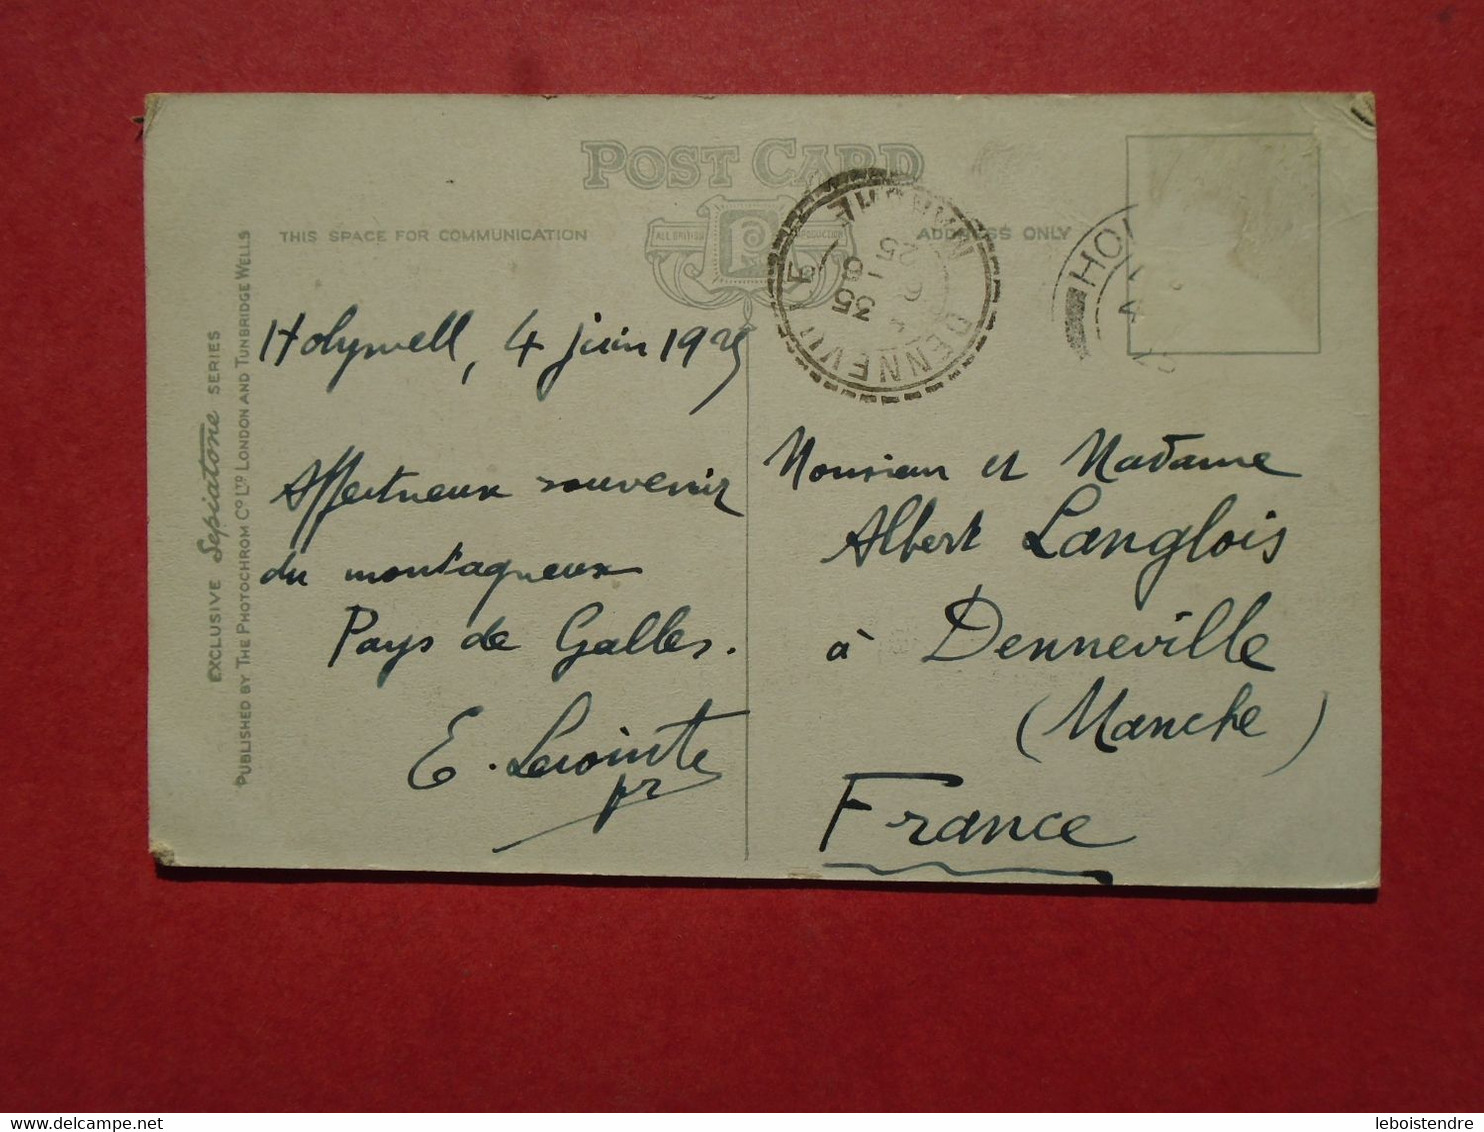 POST CARD
THIS SPACE FOR COMMUNICATION
ALL BRITISH
PRODUCTION
ADDRESS ONLY
EXCLUSIVE Sepiatone SERIES
PUBLISHED BY THE PHOTOCHROM CO LTD LONDON AND TUNBRIDGE WELLS
DENNEVILLE
MANCHE
35
HOL
Holywell, 4 juin
Affectueux souvenir
du montagneux
Pays de Galles.
E. Lecointe
pr
Monsieur et Madame
Albert Langlois
à Denneville
(Manche)
France
leboistendre